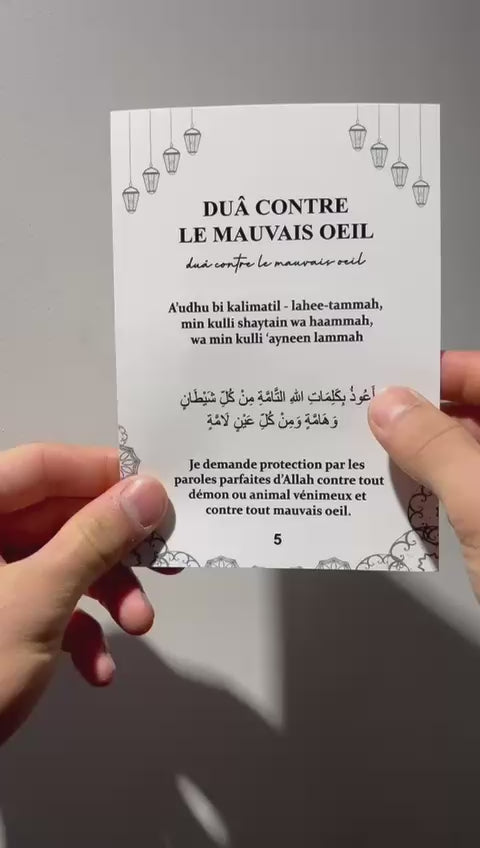 DUÂ CONTRE
LE MAUVAIS OEIL
duâ contre le mauvais oeil
A'udhu bi kalimatil - lahee-tammah,
min kulli shaytain wa haammah,
wa min kulli ‘ayneen lammah
أَعُوذُ بِكَلِمَاتِ اللهِ التَّامَّةِ مِنْ كُلِّ شَيْطَانٍ
وَهَامَّةٍ وَمِنْ كُلِّ عَيْنٍ لَامَّةٍ
Je demande protection par les
paroles parfaites d'Allah contre tout
démon ou animal vénimeux et
contre tout mauvais oeil.
5